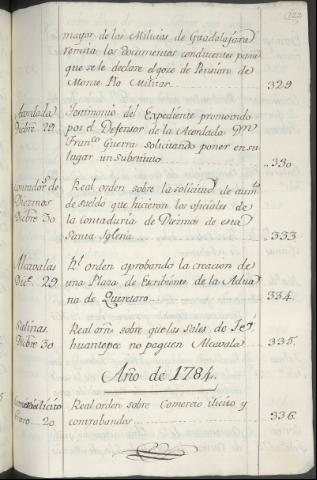 122
mayor de las Milicias de Guadalaxara
remita los documentos conducentes para
que se le declare el goze de Pensiōn de
Monte Pio Militar 329
Acordada
Dicbre. 29. Testimonio del Expediente promovido
por el Defensor de la Acordada Dn.
Franco. Guerra solicitando poner en su
lugar un substituto 330
Contador. de
Diezmos
Dicbre. 30 Real orden sobre la solicitud de aumto.
de sueldo que hicieron los oficiales de
la contaduria de Diezmos de esta
Santa Iglesia 333
Alcavalas
Dice. 29 Rl. orden aprobando la creacion de
una Plaza de Escribiente de la Adua
na de Queretaro 334.
Salinas
Dicbre 30 Real orñ sobre que las Sales de Te
huantepec no paguen Alcavala 335.
Año de 1784.
Comercio ilicito
Enero 20 Real orden sobre Comercio ilicito y
contrabandos 336.